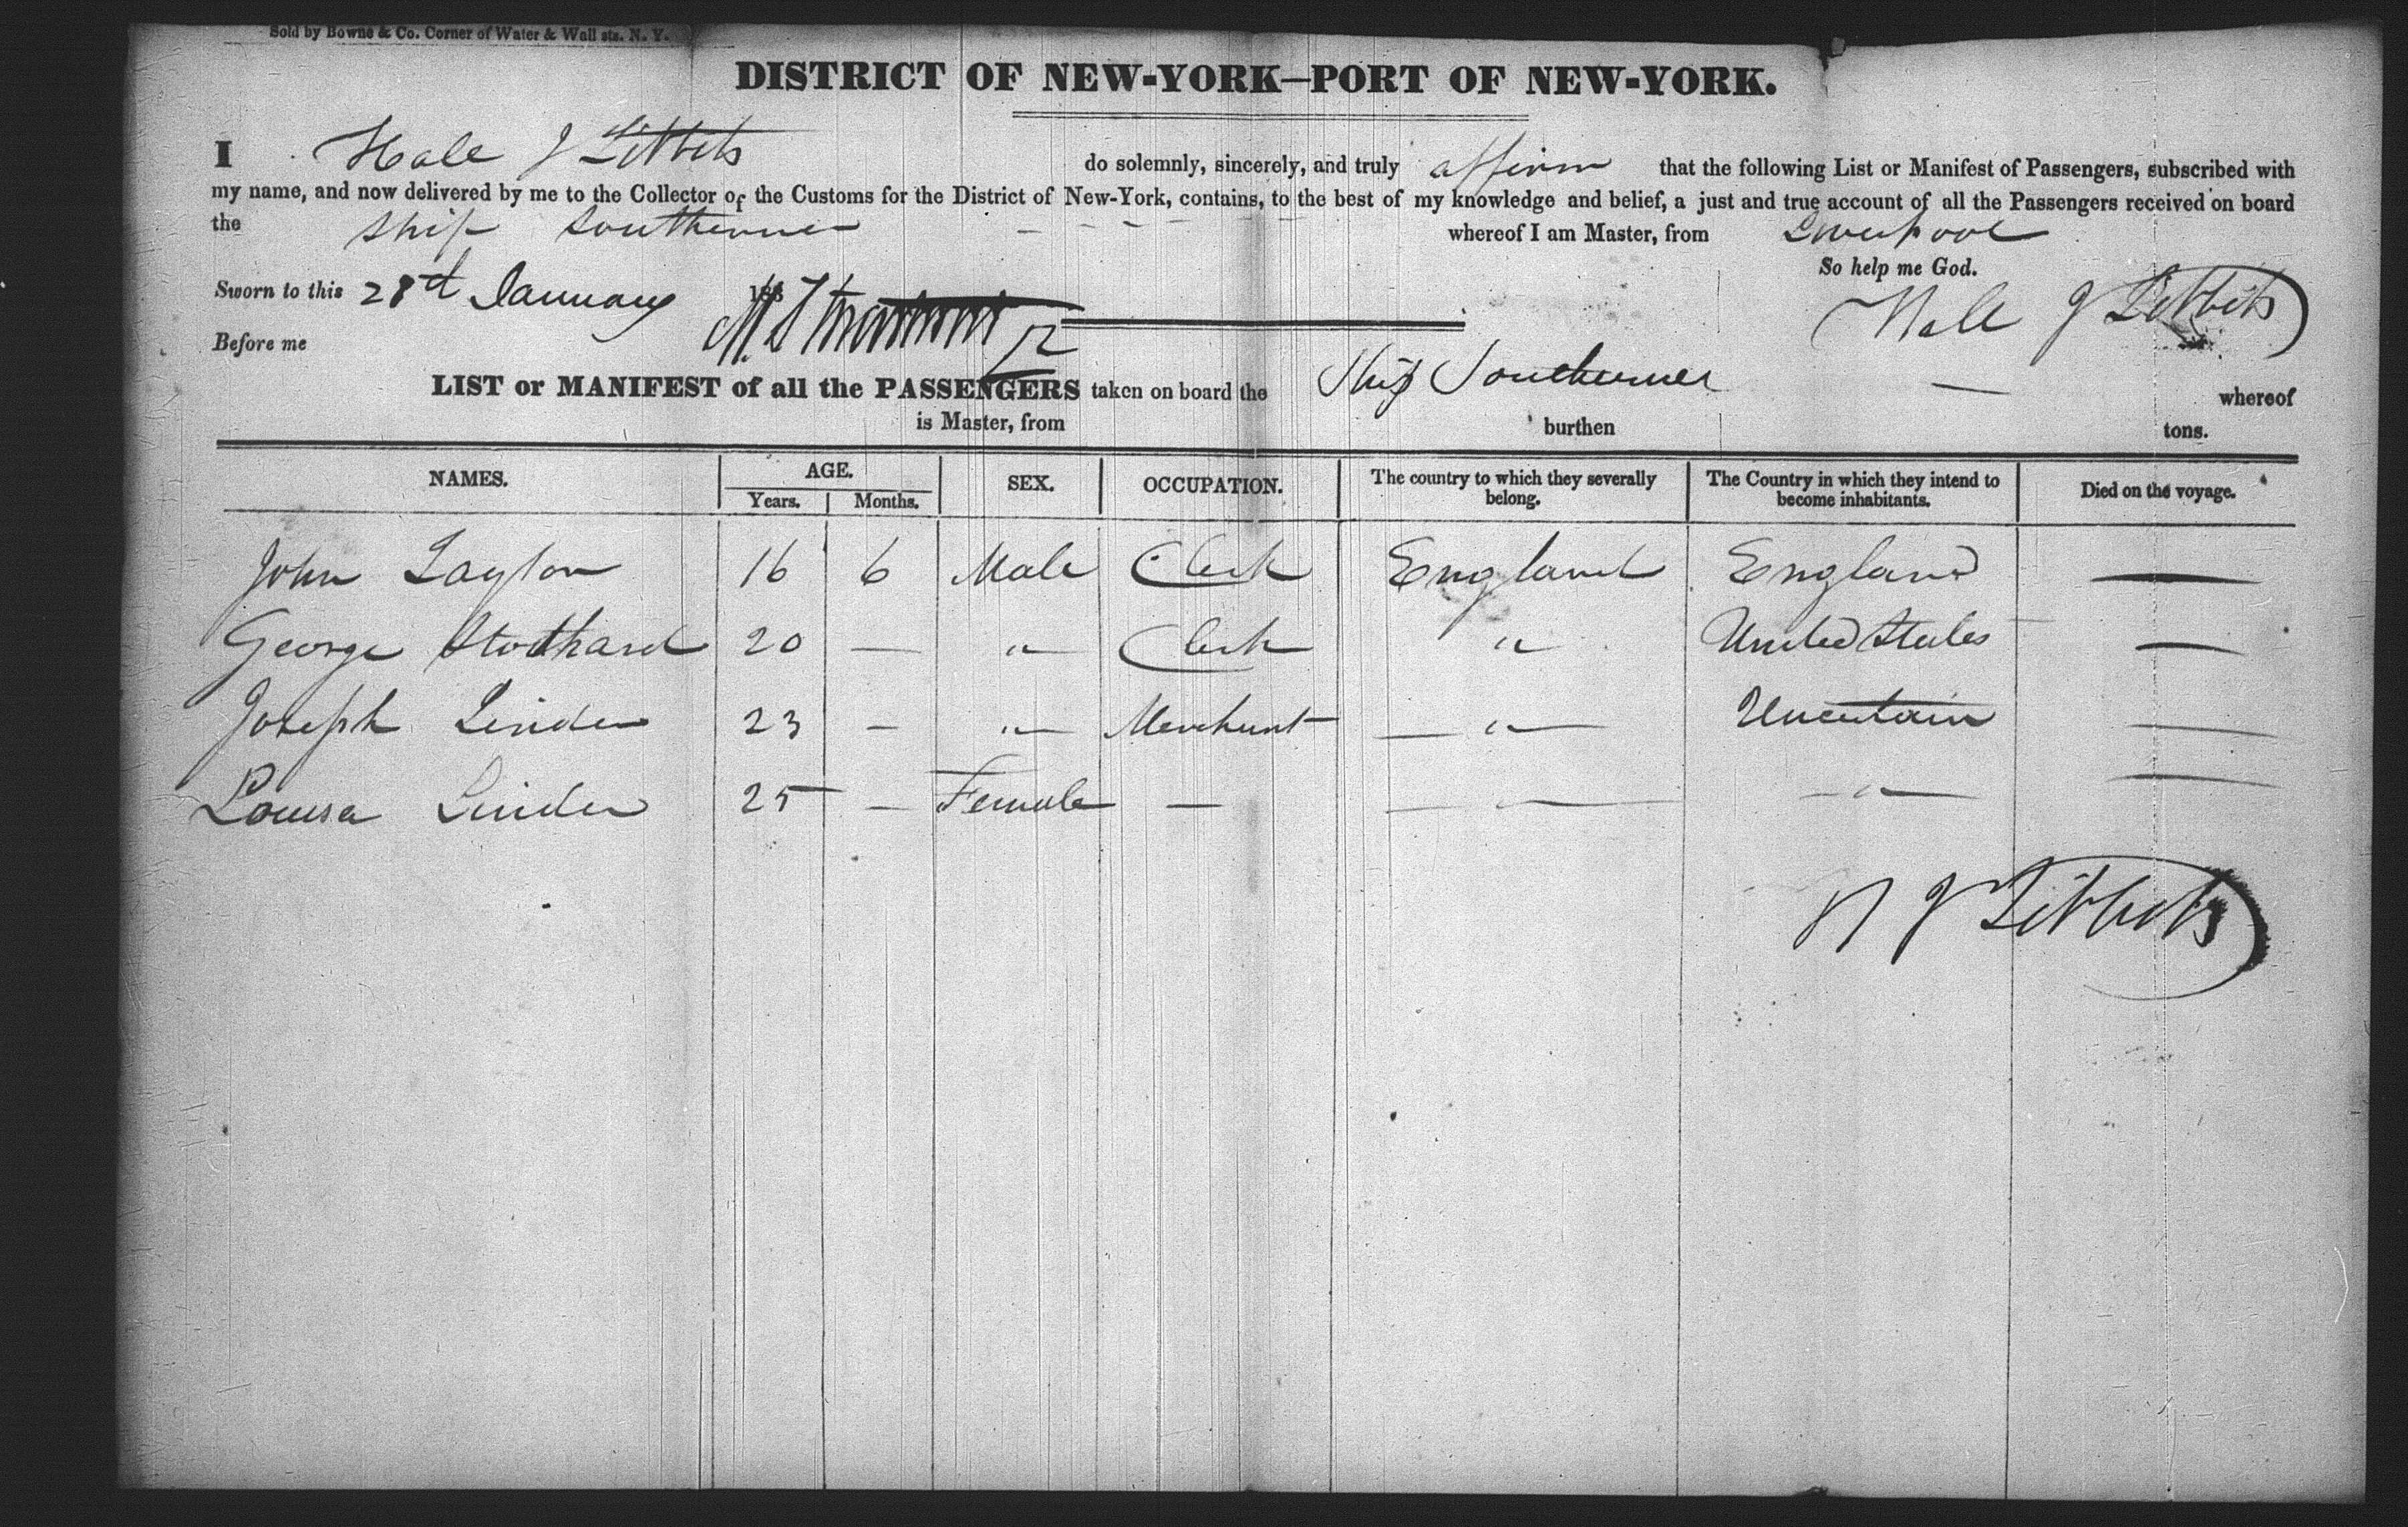 Sold by Bowne & Co. Corner of Water & Wall sts. N. Y.
DISTRICT OF NEW-YORK—PORT OF NEW-YORK.
I do solemnly, sincerely, and truly affirm that the following List or Manifest of Passengers, subscribed with
my name, and now delivered by me to the Collector of the Customs for the District of New-York, contains, to the best of my knowledge and belief, a just and true account of all the Passengers received on board
the Ship Southerner whereof I am Master, from Liverpool
So help me God.
Sworn to this 28d January 183
Before me
LIST or MANIFEST of all the PASSENGERS taken on board the Ship Southerner — whereof
is Master, from burthen tons.
NAMES. AGE. SEX. OCCUPATION. The country to which they severally belong. The Country in which they intend to become inhabitants. Died on the voyage.
Years. Months.
John Layton 16 6 Male Clerk England England —
George Stodhard 20 — " Clerk " United States —
Joseph Linder 23 — " Merchant — " — Uncertain —
Louisa Linder 25 — Female — — " — — " — —